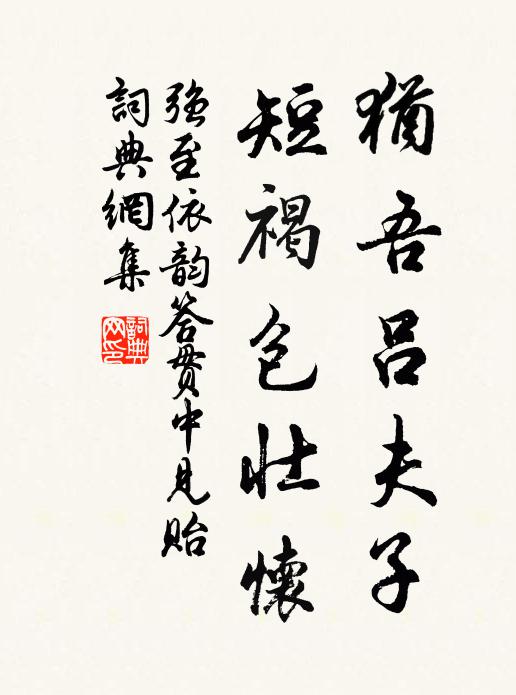 猶吾呂夫子
短褐包壯懷
強至依韵答貫中見貽
詞典網集
詞典网印